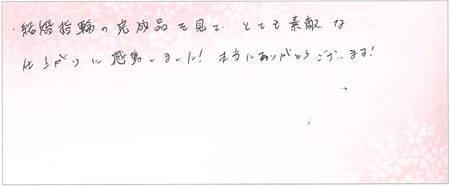 ・結婚指輪の完成品を見て、とても素敵な
仕上がりに感動しました!本当にありがとうございます!